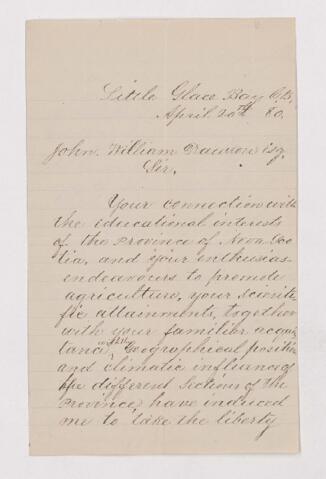 Little Glace Bay C.B.
April 20th 80.
John William Dawson Esq.
Sir,
Your connection with
the educational interests
of the Province of Nova Sco
tia, and your enthusias
endeavours to promote
agriculture, your scienti
fic attainments, together
with your familiar acqui
tance with Geographical position
and climatic influences of
the different Sections of the
Province, have induced
me to take the liberty